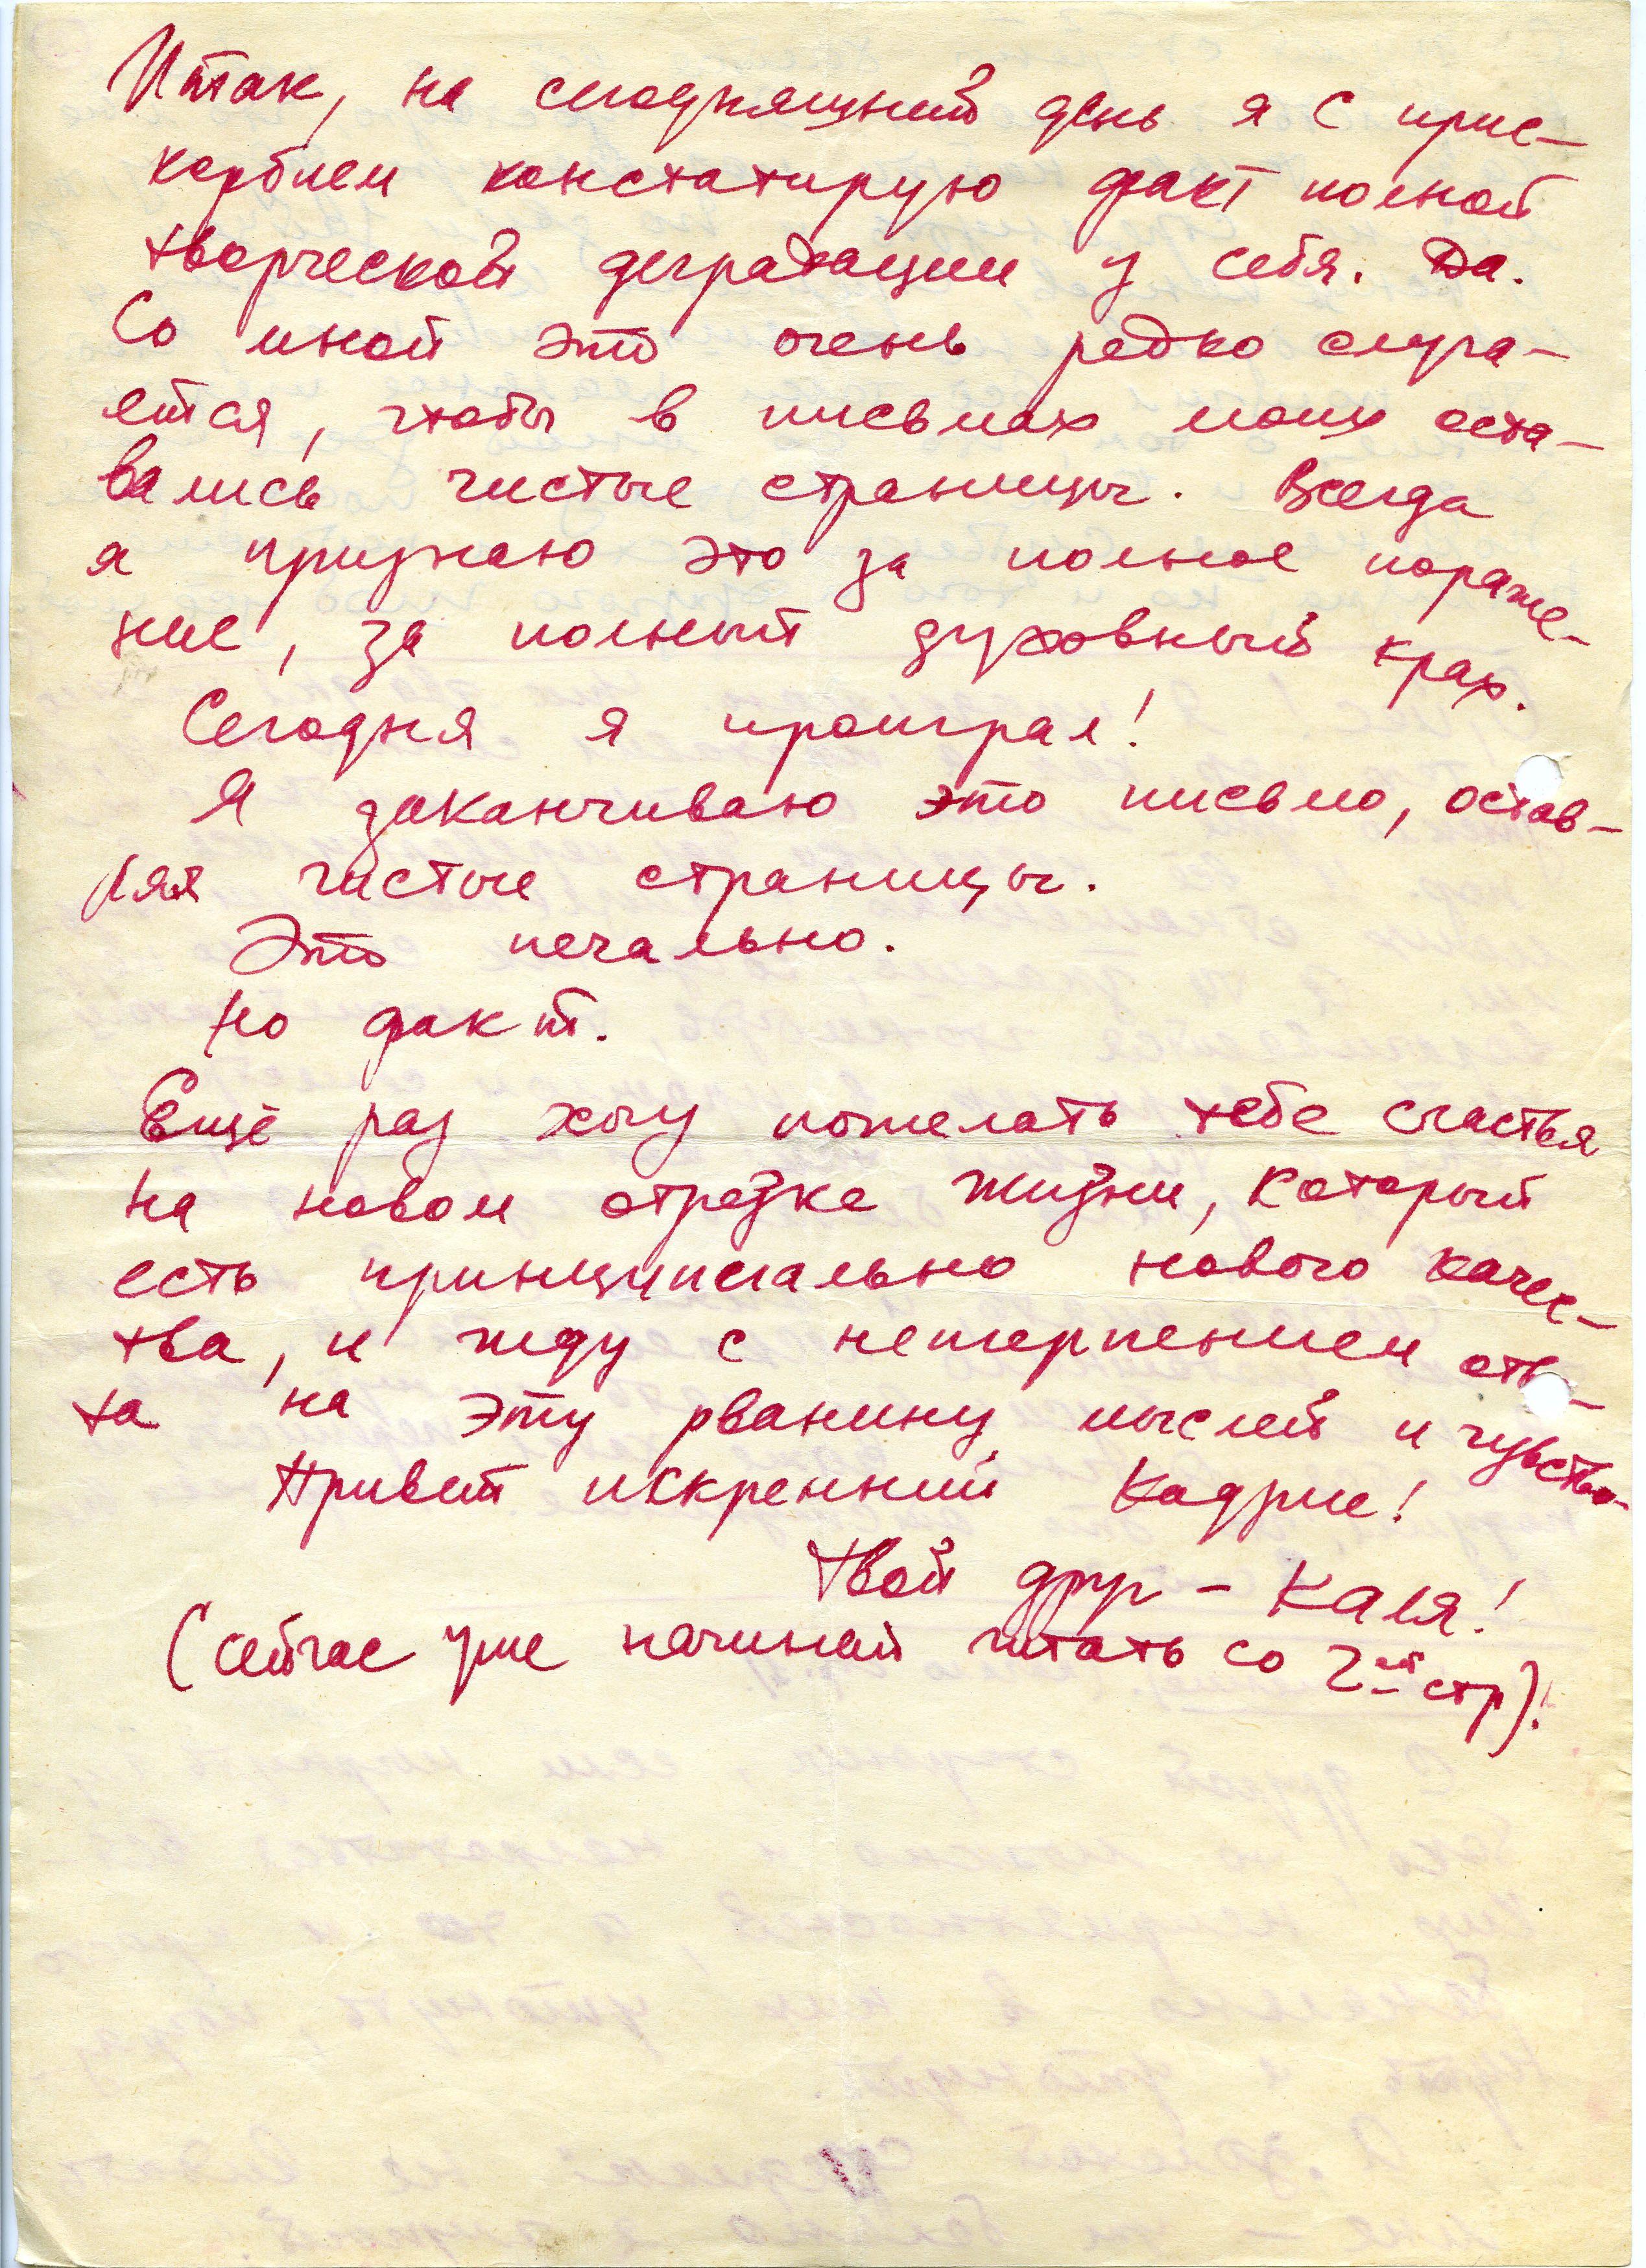 Итак, на сегодняшний день я с прис-
корбием констатирую факт полной
творческой деградации у себя. Да.
Со мной это очень редко случа-
ется, чтобы в письмах моих оста-
вались чистые страницы. Всегда
я признаю это за полное пораже-
ние, за полный духовный крах.
Сегодня я проиграл!
Я заканчиваю это письмо, остав-
ляя чистые страницы.
Это печально.
Но факт.
Ещё раз хочу пожелать тебе счастья
на новом отрезке жизни, который
есть принципиально нового качес-
тва, и жду с нетерпением отве-
та на эту рванину мыслей и чувств.
Привет искренний Кадрие!
Твой друг – Каля!
(Сейчас уже начинай читать со 2ой стр)!